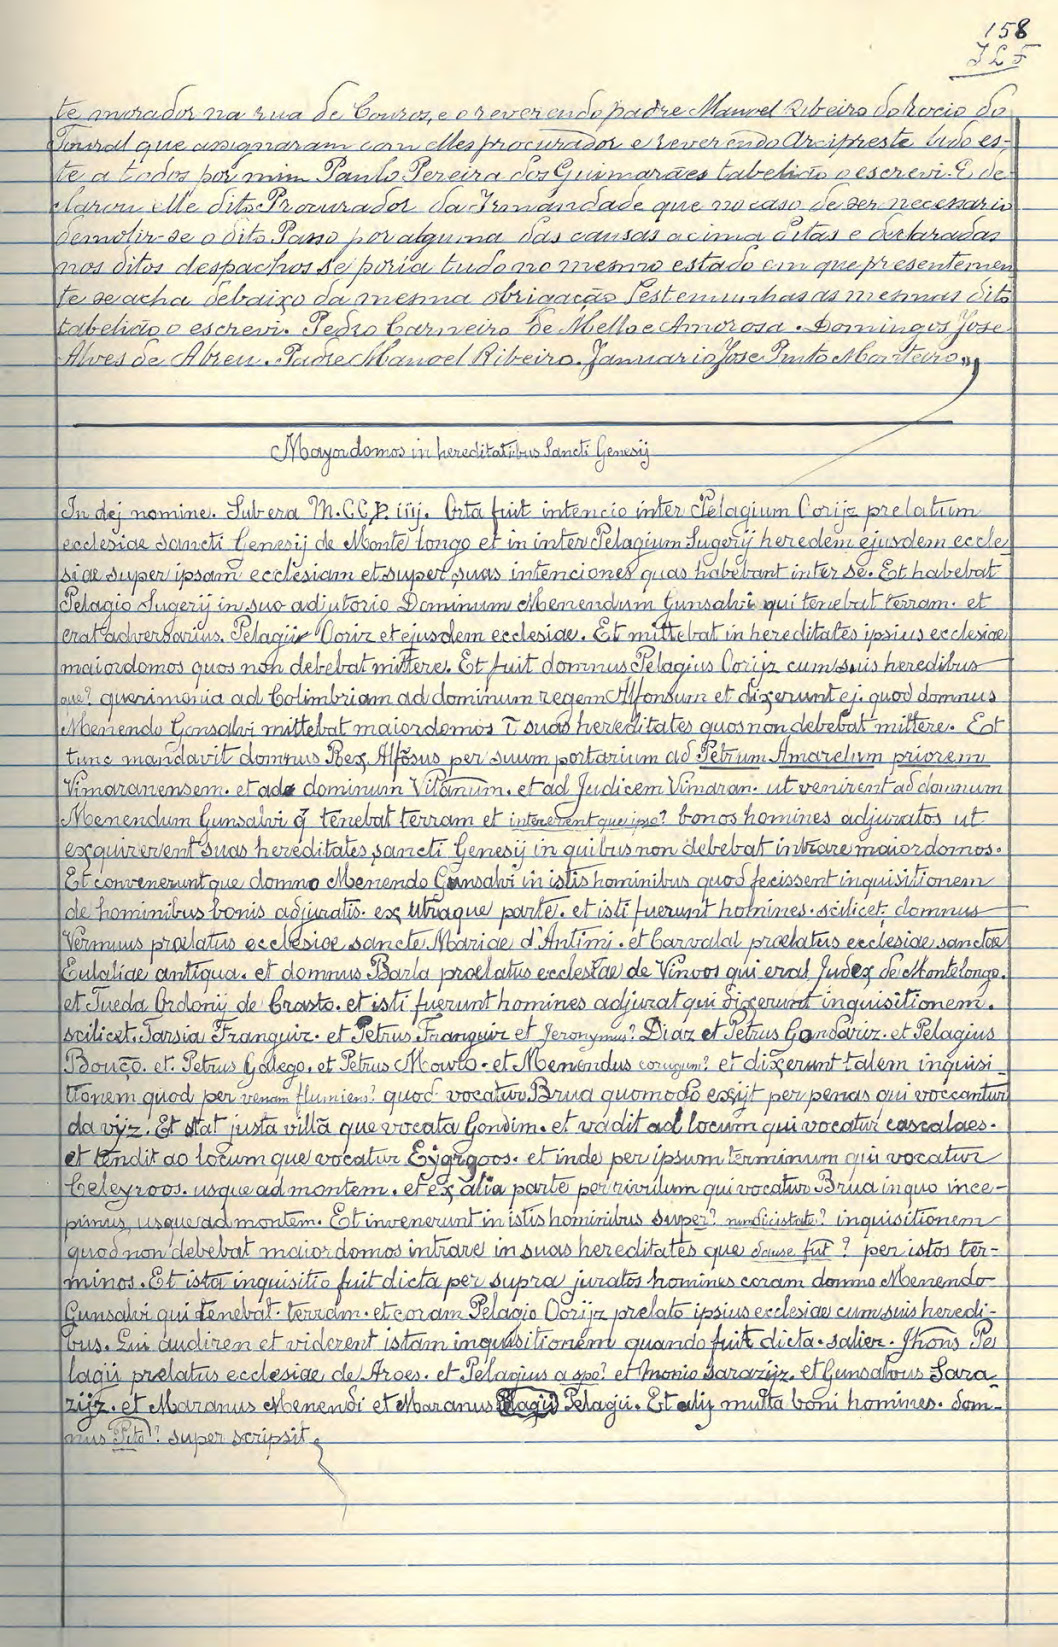 158
J L F
te morador na rua de Couros, e o reverendo padre Manoel Ribeiro do Rocio do
Toural que assignaram com elles procurador e reverendo Arcipreste lido es-
te a todos por mim Paulo Pereira dos Guimarães tabelião o escrevi. E de-
clarou elle dito Procurador da Irmandade que no caso de ser necessario
demolir-se o dito Passo por alguma das causas acima ditas e declaradas
nos ditos despachos se poria tudo no mesmo estado em que presentemen
te se acha debaixo da mesma obrigação Testemunhas as mesmas dito
tabelião o escrevi. Pedro Carneiro de Mello e Amorosa. Domingos Jose
Alves de Abreu. Padre Manoel Ribeiro. Januario Jose Pinto Monteiro.
Mayordomos in hereditatibus Sancti Genesij
In dej nomine. Sub era M.CC. iiij. Orta fuit intencio inter Pelagium Oorijz prelatum
ecclesiae sancti Genesij de Monte longo et in inter Pelagium Sugerij heredem ejusdem eccle-
siae super ipsam ecclesiam et super suas intenciones quas habebant inter se. Et habebat
Pelagio Sugerij in suo adjutorio Dominum Menendum Gunsalvi qui tenebat terram. et
erat adversarius. Pelagii Ooriz et ejusdem ecclesiae. Et mittebat in hereditates ipsius ecclesiae
maiordomos quos non debebat mittere. Et fuit domnus Pelagius Oorijz cum suis heredibus
que? querimonia ad Colimbriam ad dominum regem Alfonsum et dixerunt ej. quod domnus
Menendo Gonsalvi mittebat maiordomos ĩ suas hereditates quos non debebat mittere. Et
tunc mandavit domnus Rex Alfõsus per suum portarium ad Petrum Amarelum priorem
Vimaranensem. et ad dominum Vitanum. et ad Judicem Vimaran. ut venirent ad domnum
Menendum Gunsalvi q̃ tenebat terram et intererent que ipse? bonos homines adjuratos ut
exquirerent suas hereditates sancti Genesij in quibus non debebat intrare maiordomos.
Et convenerunt que domno Menendo Gunsalvi in istis hominibus quod fecissent inquisitionem
de hominibus bonis adjuratis. ex utraque parte. et isti fuerunt homines. scilicet, domnus
Vermuus praelatus ecclesiae sancte Mariae d'Antimi. et Carvalal praelatus ecclesiae sanctae
Eulaliae antiqua. et domnus Barla praelatus ecclesiae de Vinvos qui erat Judex de Montelongo.
et Tueda Ordonij de Crasto. et isti fuerunt homines adjurat qui dixerunt inquisitionem.
scilicet. Tarsia Franquiz. et Petrus Franquiz et Jeronymus? Diaz et Petrus Gondariz. et Pelagius
Bouço. et. Petrus Galego. et Petrus Mouro. et Menendus corugun? et dixerunt talem inquisi-
tionem quod per venam flumiens? quod vocatur Brua quomodo exijt per penas qui voccantur
da vijz. Et stat justa villã que vocata Gondim. et vadit ad locum qui vocatur cascalaes.
et tendit ao locum que vocatur Eygigoos. et inde per ipsum terminum qui vocatur
Celeyroos. usque ad montem. et ex alia parte per rivulum qui vocatur Brua in quo ince-
pimus, usque ad montem. Et invenerunt in istis hominibus super? inquisitionem
quod non debebat maiordomos intrare in suas hereditates que dause fut? per istos ter-
minos. Et ista inquisitio fuit dicta per supra juratos homines coram domno Menendo
Gunsalvi qui tenebat. terram. et coram Pelagio Oorijz prelato ipsius ecclesiae cum suis heredi-
bus. Qui audiren et viderent istam inquisitionem quando fuit dicta. salier. Jhoñs Pe
lagij prelatus ecclesiae de Aroes. et Pelagius a spe? et Monio Sarazijz. et Gunsalvus Sara
zijz. et Maranus Menendi et Maranus Pelagii. Et alij multa boni homines. dom-
nus Pito? super scripsit.